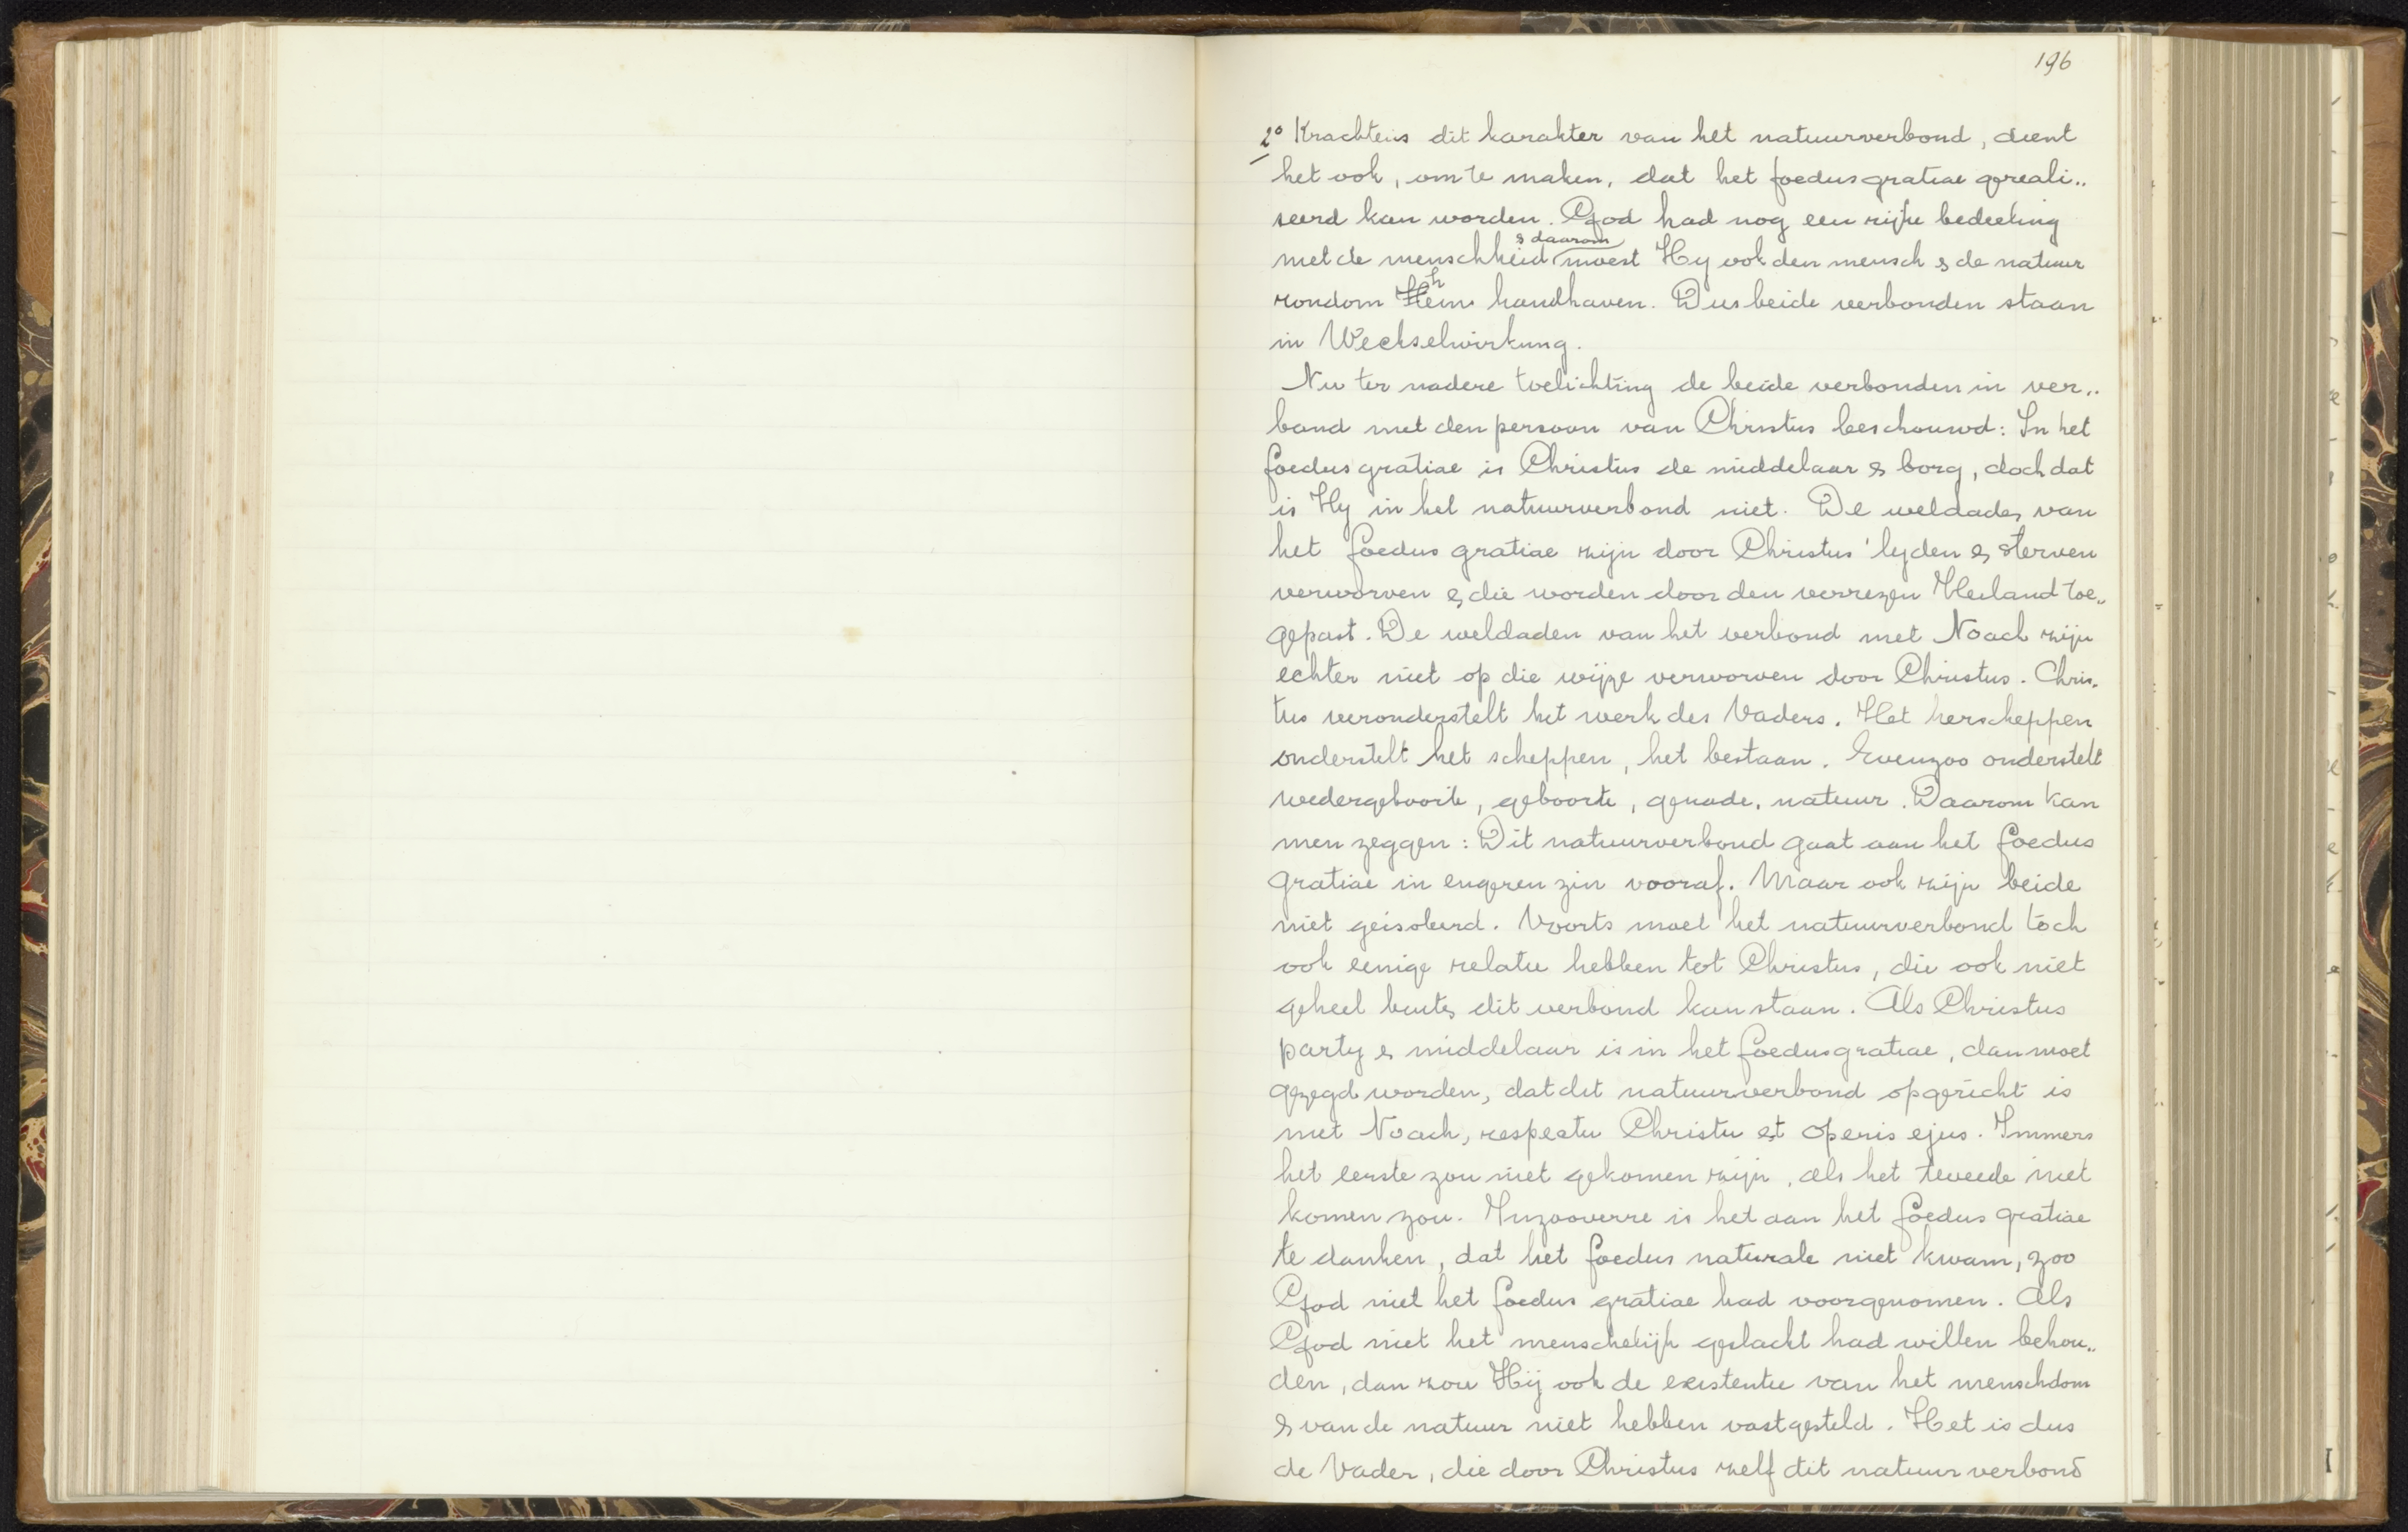 196
2° Krachtens dit karakter van het natuurverbond, dient
het ook, om te maken, dat het foedus gratiae gereali„
seerd kan worden. God had nog een rijke bedeeling
& daarom
met de menschheid moest Hy ook den mensch & de natuur
rondom hem handhaven. Dus beide verbonden staan
in Wechselwirkung.
Nu ter nadere toelichting de beide verbonden in ver„
band met den persoon van Christus beschouwd: In het
foedus gratiae is Christus de middelaar & borg, doch dat
is Hy in het natuurverbond niet. De weldaden van
het foedus gratiae zijn door Christus' lyden & sterven
verworven & die worden door den verrezen Heiland toe„
gepast. De weldaden van het verbond met Noach zijn
echter niet op die wijze verworven door Christus. Chris„
tus veronderstelt het werk des Vaders. Het herscheppen
onderstelt het scheppen, het bestaan. Evenzoo onderstelt
wedergeboorte, geboorte, genade, natuur. Daarom kan
men zeggen: Dit natuurverbond gaat aan het foedus
gratiae in engeren zin vooraf. Maar ook zijn beide
niet geisoleerd. Voorts moet het natuurverbond toch
ook eenige relatie hebben tot Christus, die ook niet
geheel buiten dit verbond kan staan. Als Christus
party & middelaar is in het foedus gratiae, dan moet
gezegd worden, dat dit natuurverbond opgericht is
met Noach, respectu Christu et operis ejus. Immers
het eerste zou niet gekomen zijn, als het tweede niet
komen zou. Inzooverre is het aan het foedus gratiae
te danken, dat het foedus naturale niet kwam, zoo
God niet het foedus gratiae had voorgenomen. Als
God niet het menschelijk geslacht had willen behou„
den, dan zou Hij ook de existentie van het menschdom
& van de natuur niet hebben vastgesteld. Het is dus
de Vader, die door Christus zelf dit natuurverbond